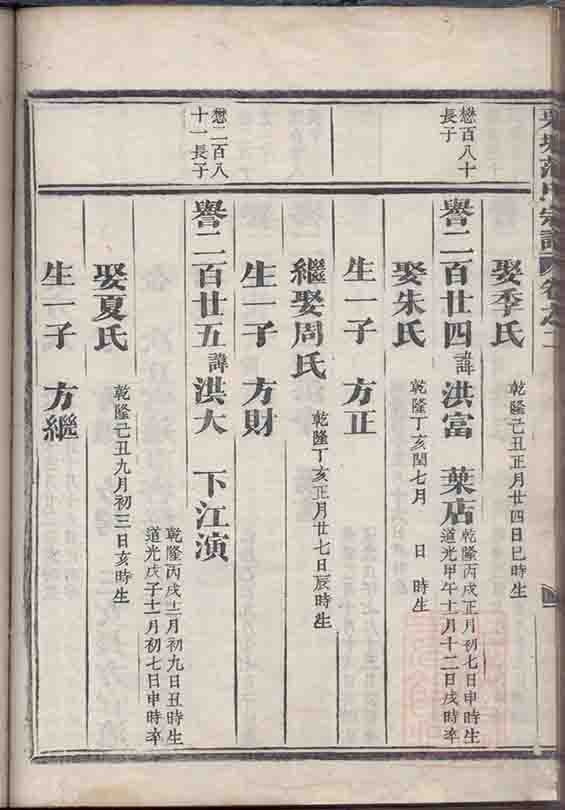 娶季氏 乾隆己丑正月廿四日巳時生
懋百八十
長子
譽二百廿四 諱 洪富 葉店
乾隆丙戌正月初七日申時生
道光甲午十一月十二日戌時卒
娶朱氏 乾隆丁亥閏七月 日 時生
生一子 方正
繼娶周氏 乾隆丁亥正月廿七日辰時生
生一子 方財
懋二百八
十一長子
譽二百廿五 諱 洪大 下江演
乾隆丙戌十二月初九日丑時生
道光戊子十一月初七日申時卒
娶夏氏 乾隆己丑九月初三日亥時生
生一子 方繼